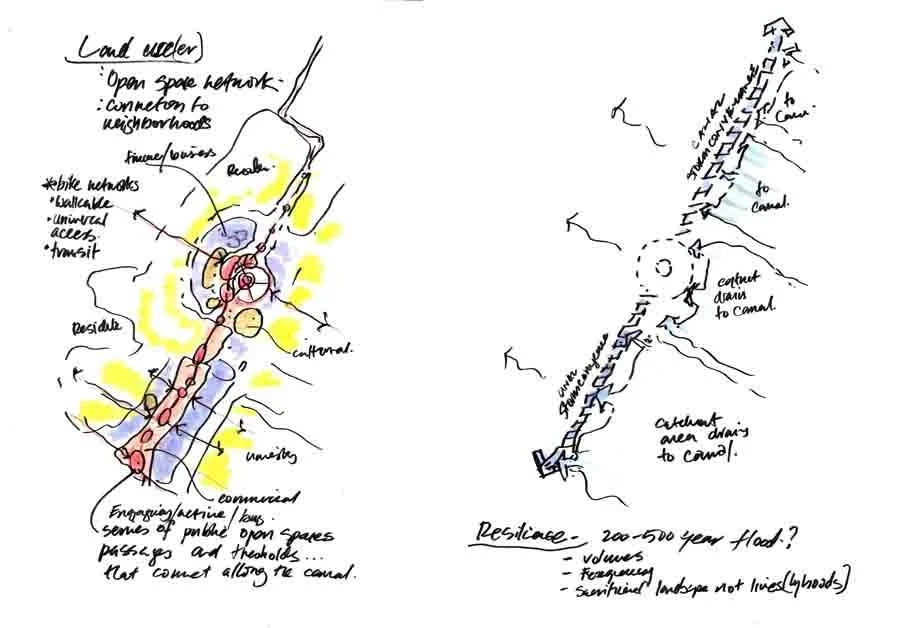 Land use(er)
: Open space network.
: Connection to
neighborhoods
finance/business
Reside
*bike networks
• walkable
• universal
access
• transit
Reside
cultural.
commercial
Engaging/active/
series of public open spaces
passages and thresholds...
that connect allong the canal.
to
canal.
to
canal.
stormconveyance
catchmt
drains
to canal.
stormconveyance
catchment
area drains
to canal.
Resilicase - 200-500 year flood?
- volumes
- Frequency
- Sacrificial landscape not lives(lyhoods)